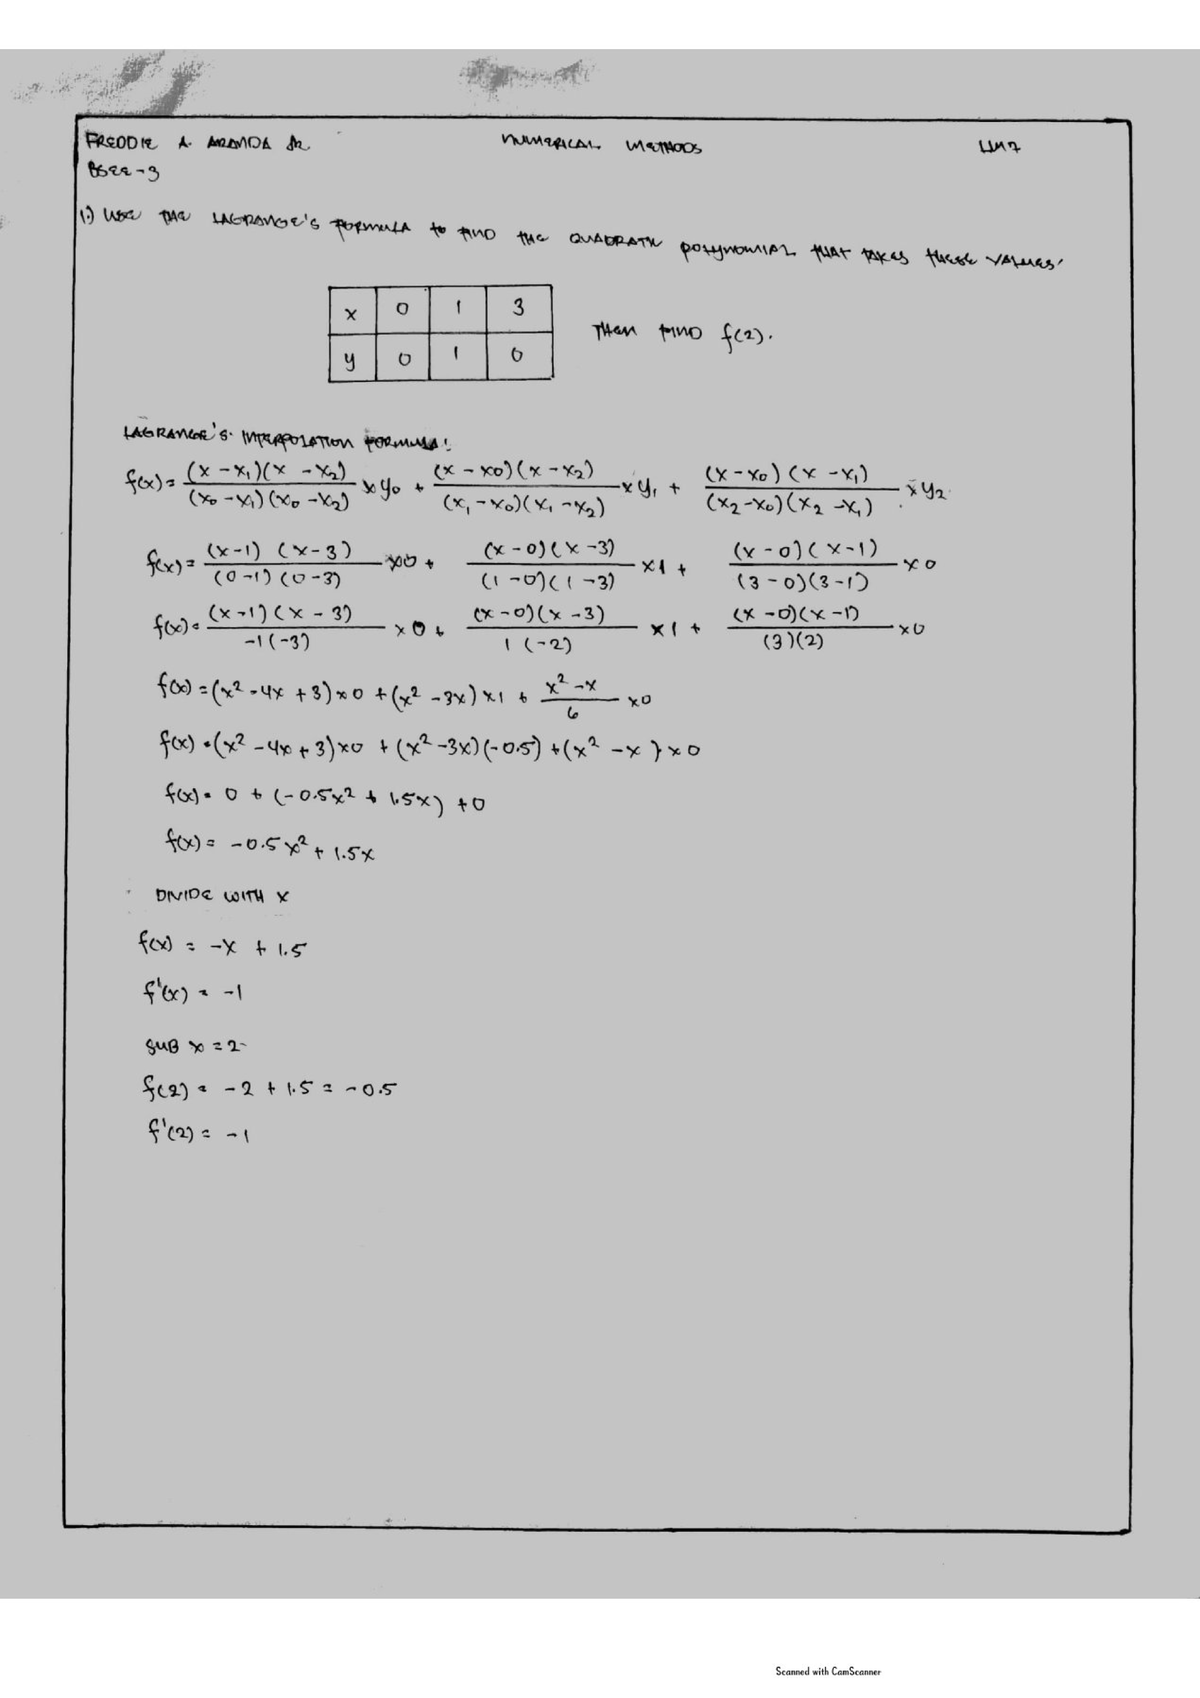 FREDDIE A. ARANDA JR. NUMERICAL METHODS LM7
BSEE-3
1.) USE THE LAGRANGE'S FORMULA TO FIND THE QUADRATIC POLYNOMIAL THAT TAKES THESE VALUES.
x 0 1 3
y 0 1 0
THEN FIND f(2).
LAGRANGE'S INTERPOLATION FORMULA:
f(x) = (x - x₁)(x - x₂) / (x₀ - x₁)(x₀ - x₂) × y₀ + (x - x₀)(x - x₂) / (x₁ - x₀)(x₁ - x₂) × y₁ + (x - x₀)(x - x₁) / (x₂ - x₀)(x₂ - x₁) × y₂
f(x) = (x - 1)(x - 3) / (0 - 1)(0 - 3) × 0 + (x - 0)(x - 3) / (1 - 0)(1 - 3) × 1 + (x - 0)(x - 1) / (3 - 0)(3 - 1) × 0
f(x) = (x - 1)(x - 3) / -1(-3) × 0 + (x - 0)(x - 3) / 1(-2) × 1 + (x - 0)(x - 1) / (3)(2) × 0
f(x) = (x² - 4x + 3) × 0 + (x² - 3x) × 1 + x² - x / 6 × 0
f(x) = (x² - 4x + 3) × 0 + (x² - 3x)(-0.5) + (x² - x) × 0
f(x) = 0 + (-0.5x² + 1.5x) + 0
f(x) = -0.5x² + 1.5x
DIVIDE WITH X
f(x) = -x + 1.5
f'(x) = -1
SUB x = 2
f(2) = -2 + 1.5 = -0.5
f'(2) = -1
Scanned with CamScanner